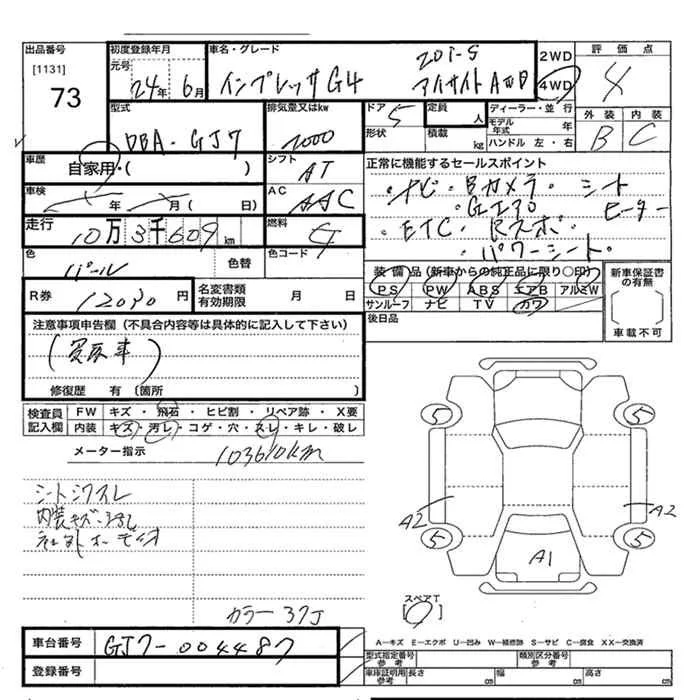 出品番号 [1131] 73
初度登録年月 元号 24年 6月
車名・グレード インプレッサG4 2.0i-S アイサイト AWD
2WD 4WD
評価点 4
外装 B 内装 C
型式 DBA-GJ7
排気量又はkw 2000
ドア 5 形状
定員 人 積載 kg
ディーラー・並行
モデル年式 年
ハンドル 左・右
車歴 自家用・( )
シフト AT
正常に機能するセールスポイント
・ナビ・Bカメラ・シート
ヒーター
・ETC・Rスポ
・パワーシート・
車検 年 月( 日)
AC AAC
走行 10万3千609km
燃料 G
色 パール 色替
色カラーコード
装備品(新車からの純正品に限り○印)
PS PW ABS エアB アルミW
サンルーフ ナビ TV カワ
新車保証書の有無
車載不可
R券 12030円
名変書類有効期限 月 日
後日品
注意事項申告欄(不具合内容等は具体的に記入して下さい)
修復歴 有〔箇所 〕
検査員記入欄
FW キズ・飛石・ヒビ割・リペア跡・X要
内装 キズ・汚レ・コゲ・穴・スレ・キレ・破レ
メーター指示 103610km
シートシワスレ
内装キズ・ヨゴレ
社外オーディオ
カラー 37J
5 5 5 5
A2 A2
A1
スペアT
車台番号 GJ7-004487
登録番号
A-キズ E-エクボ U-凹み W-補修跡 S-サビ C-腐食 XX-交換済
型式指定番号 参考 類別区分番号 参考
車庫証明用 参考 長さ cm 幅 cm 高さ cm